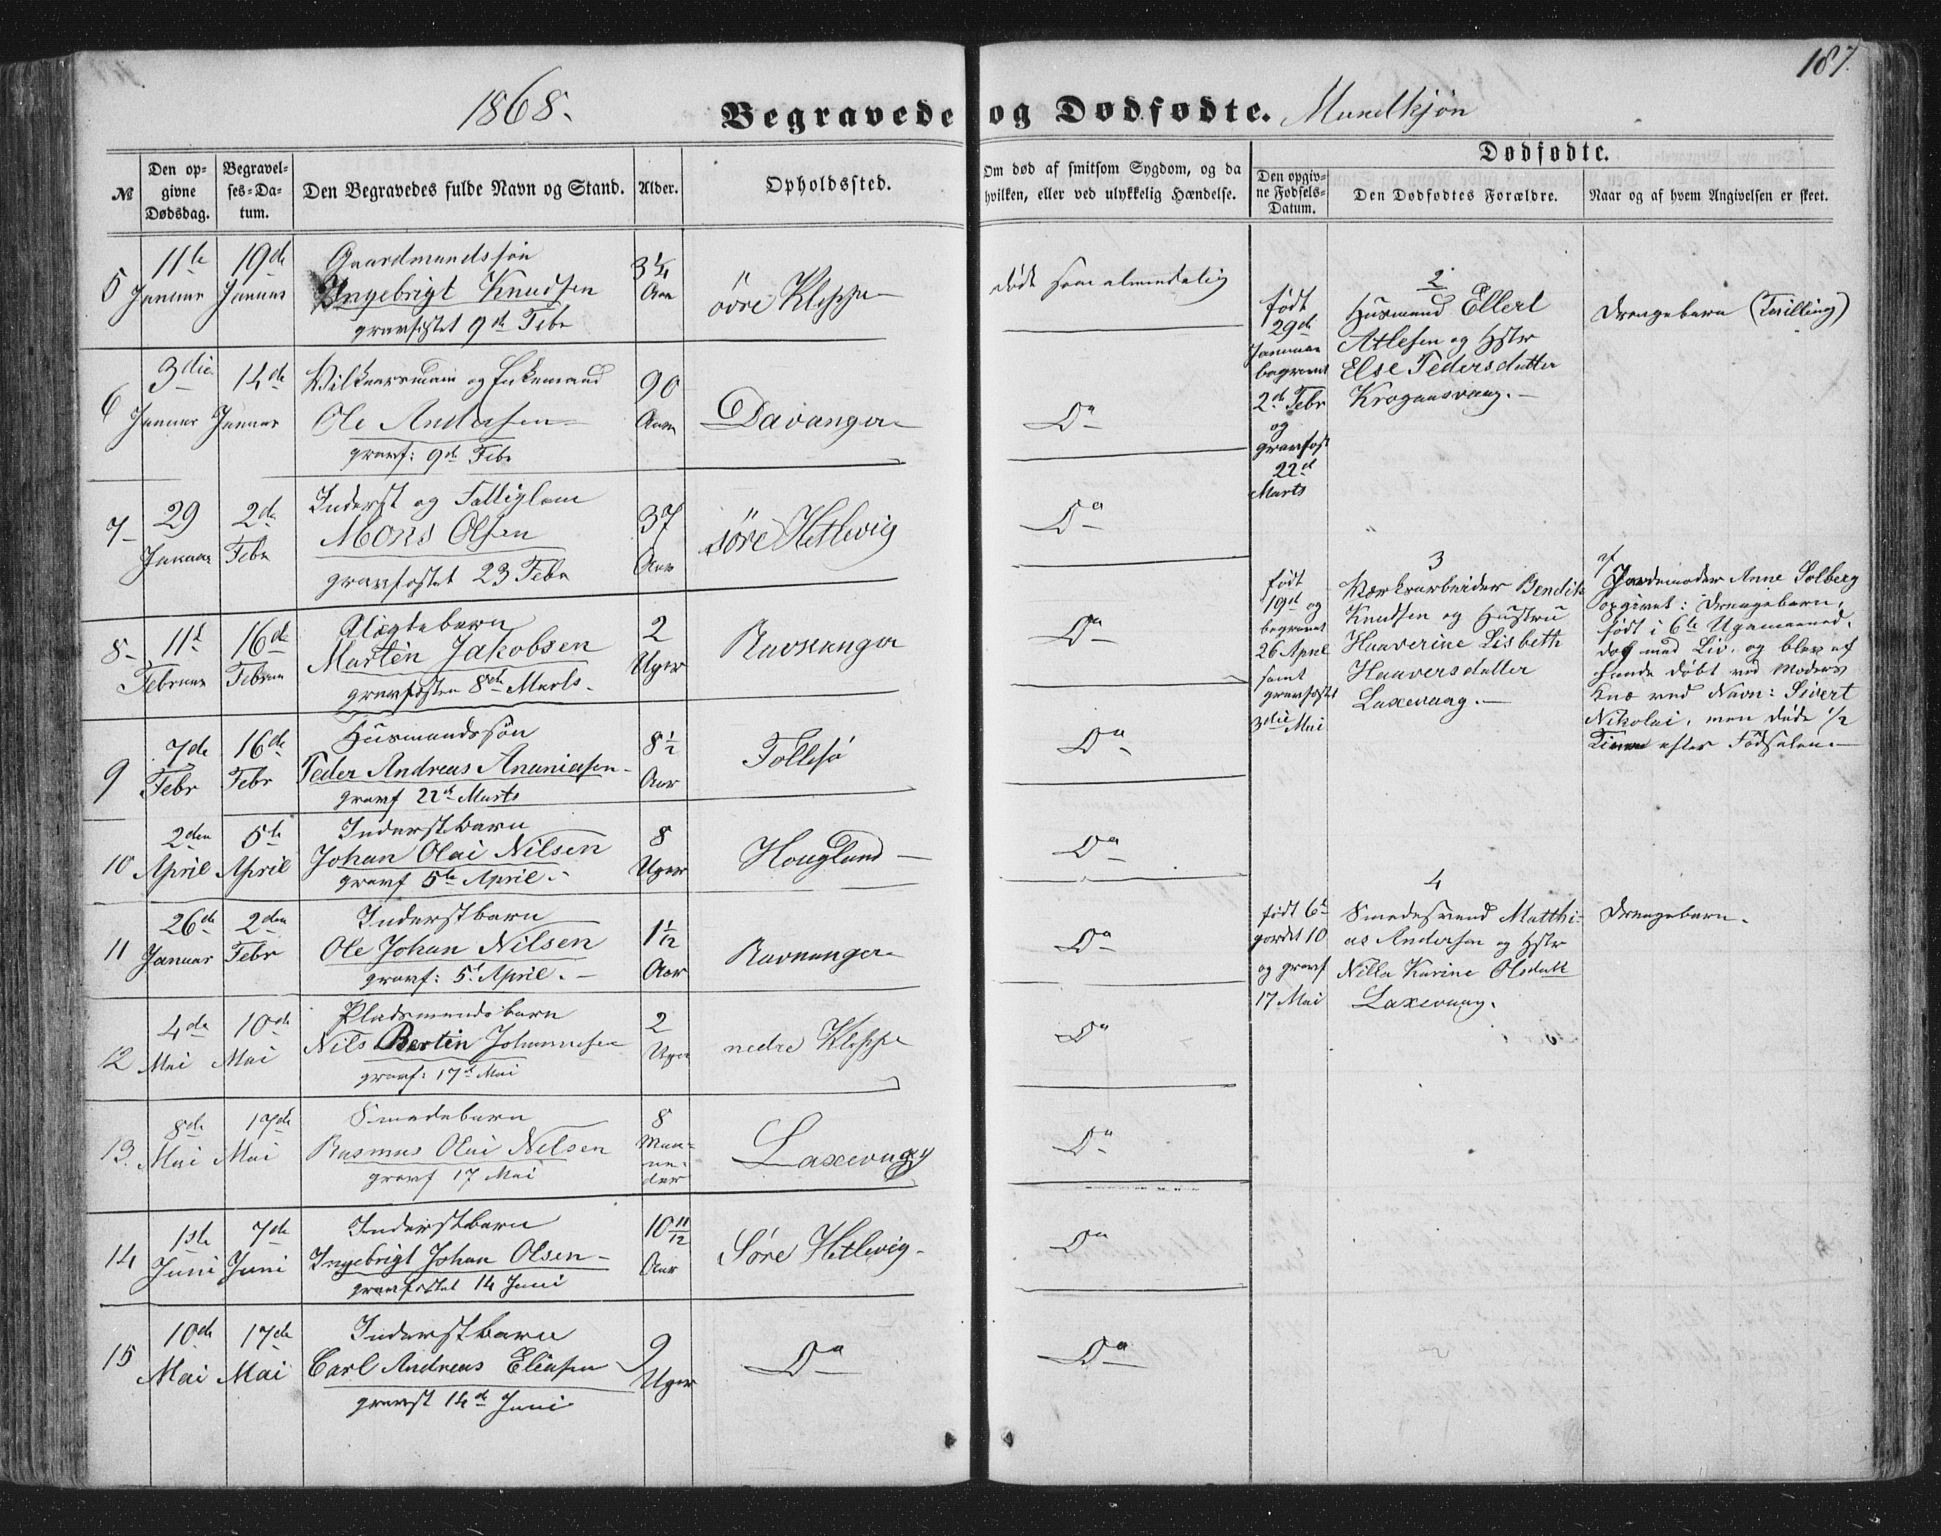 187.
1868.
Begravede og Dødfødte. Mandkjøn
Dødfødte.
№
Den opgivne Dødsdag.
Begravelses-Datum.
Den Begravedes fulde Navn og Stand.
Alder.
Opholdssted.
Om død af smitsom Sygdom, og da hvilken, eller ved ulykkelig Hændelse.
Den opgivne Fødsels-Datum.
Den Dødfødtes Forældre.
Naar og af hvem Angivelsen er skeet.
5
11te Januar
19de Januar
Gaardmandssøn
Ingebrigt Knudsen
gravfæstet 9de Febr
3 1/4 Aar
øvre Kleppe
død som almindelig
6
3die Januar
14de Januar
Vilkaarsmand og Enkemand
Ole Andersen
gravf: 9de Febr
90 Aar
Davanger
Do
7
29 Januar
2de Febr
Inderst og Fattiglem
Mons Olsen
gravfæstet 23 Febr
37 Aar
søre Hetlevig
Do
8
11t Februar
16de Februar
Uægtebarn
Martin Jakobsen
gravfæsten 8de Marts.
2 Uger
Ravnanger
Do
9
7de Febr
16de Febr
Husmandssøn
Peder Andreas Ananiasen
gravf 22de Marts
8 1/2 Aar
Follesø
Do
10
2den April
5te April
Inderstbarn
Johan Olai Nilsen
gravf 5te April.
8 Uger
Hougland
Do
11
26de Januar
2den Febr
Inderstbarn
Ole Johan Nilsen
gravf: 5t April.
1 1/12 Aar
Ravnanger
Do
12
4de Mai
10de Mai
Pladsmandsbarn
Nils Bertin Johannesen
gravf: 17de Mai
2 Uger
nedre Kleppe
Do
13.
8de Mai
17de Mai
Smedebarn
Rasmus Olai Nilsen
gravf 17 Mai
8 Maaneder
Laxevaag
Do
14
1ste Juni
7de Juni
Inderstbarn
Ingebrigt Johan Olsen
gravfæstet 14 Juni
10 11/12 Aar
Søre Hetlevig
Do
15
10de Mai
17de Mai
Inderstbarn
Carl Andreas Eliasen
gravfst 14de Juni
9 Uger
Do
Do
født 29de Januar begravet 2de Febr og gravfæst 22de Marts
2
Husmand Ellert
Atlesen og Hstr
Else Pedersdatter
Krogaasvaag.
Drengebarn (Tvilling)
født 19de og begravet 26 April samt gravfæstet 3die Mai
3
Værksarbeider Bendik
Knudsen og Hustru
Haaverine Lisbeth
Haaversdatter
Laxevaag.
af
Jordemoder Anne Solberg
opgivet: Drengebarn,
født i 6te Ugemaaned,
dog med Liv, og blev af
hende døbt ved Moders
Knæ ved Navn: Sivert
Nikolai, men døde 1/2
Time efter Fødselen.
født 6te jordet 10 og gravf 17 Mai
4
Smedesvend Matthias Andersen og Hstr
Nilla Karine Olsdatt
Laxevaag.
Drengebarn.